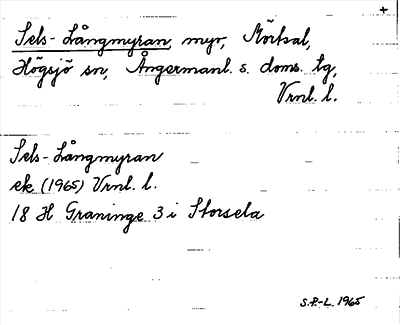 +
Sels-Långmyran, myr, Mörtsal,
Högsjö sn, Ångermanl. s. doms. tg,
Vrnl. l.
Sels-Långmyran
ek (1965) Vrnl. l.
18 H Graninge 3 i Storsela
S.P.-L. 1965